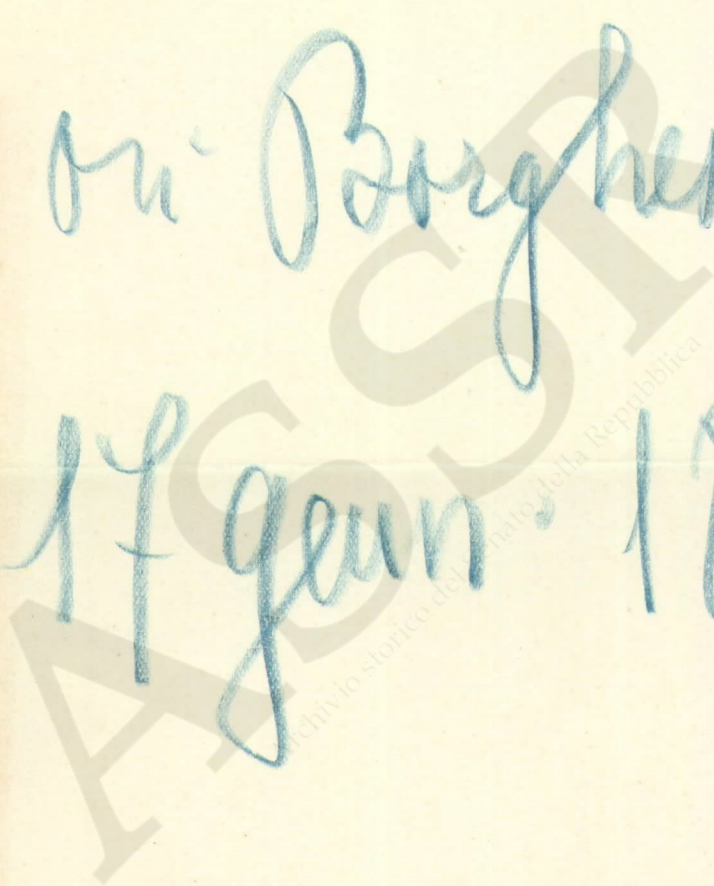 on. Borghe
17 genn. 1
ASSR
Archivio storico del Senato della Repubblica